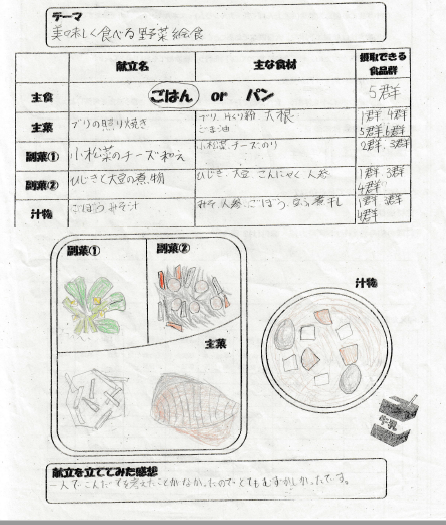 テーマ
美味しく食べる野菜給食
献立名 主な食材 摂取できる食品群
主食 ごはん or パン 5群
主菜 ブリの照り焼き ブリ、片くり粉、大根 ごま油 1群 4群 5群 6群
副菜① 小松菜のチーズ和え 小松菜、チーズ、のり 2群、3群
副菜② ひじきと大豆の煮物 ひじき、大豆、こんにゃく 人参 1群 3群 4群
汁物 ごぼうみそ汁 みそ、人参、ごぼう、煮干し 1群 3群 4群
副菜① 副菜②
主菜
汁物
牛乳
献立を立ててみた感想
一人でこんだてを考えたことがなかったのでとてもむずかしかったです。